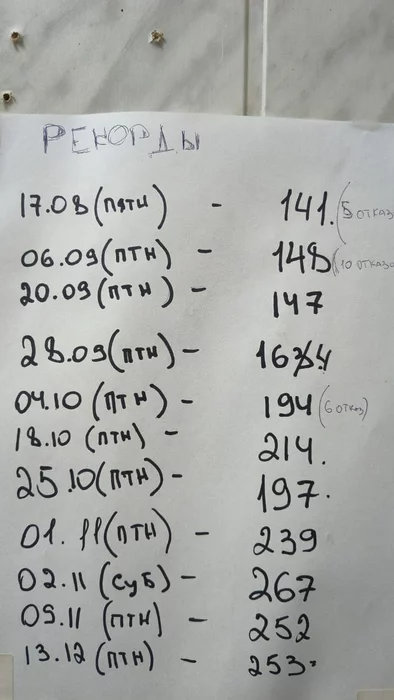 РЕКОРДЫ
17.08 (пятн) - 141. (5 отказ
06.09 (птн) - 148 (10 отказо
20.09 (птн) - 147
28.09 (птн) - 164
04.10 (птн) - 194 (6 отказ)
18.10 (птн) - 214.
25.10 (птн) - 197.
01.11 (птн) - 239
02.11 (суб) - 267
09.11 (птн) - 252
13.12 (птн) - 253.